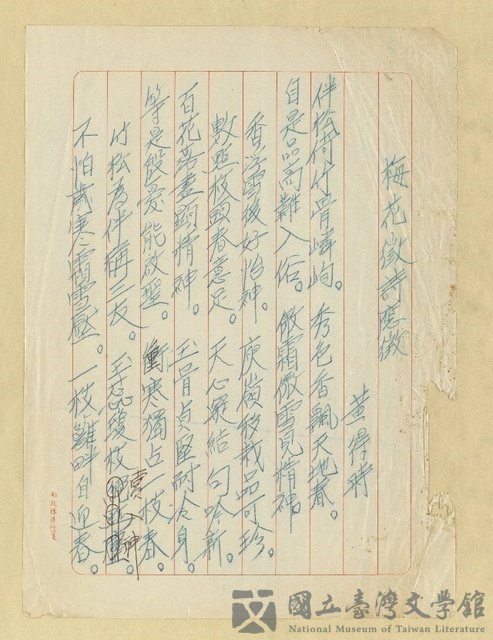 梅花徵詩應徵
黃得時
伴松倚竹骨嶙峋。秀色香飄天地春。
自是品高難入俗。傲霜傲雪見精神。
香浮雪後好怡神。庾嶺移栽品可珍。
數點枝頭春意足。天心凝結句吟新。
百花落盡顯精神。玉骨貞堅耐冷身。
等是殷憂能啟聖。衝寒獨占一枝春。
竹松為伴稱三友。玉蕊瓊枝
不怕歲寒霜雪壓。一枝籬畔自迎春。
國立臺灣文學館
National Museum of Taiwan Literature